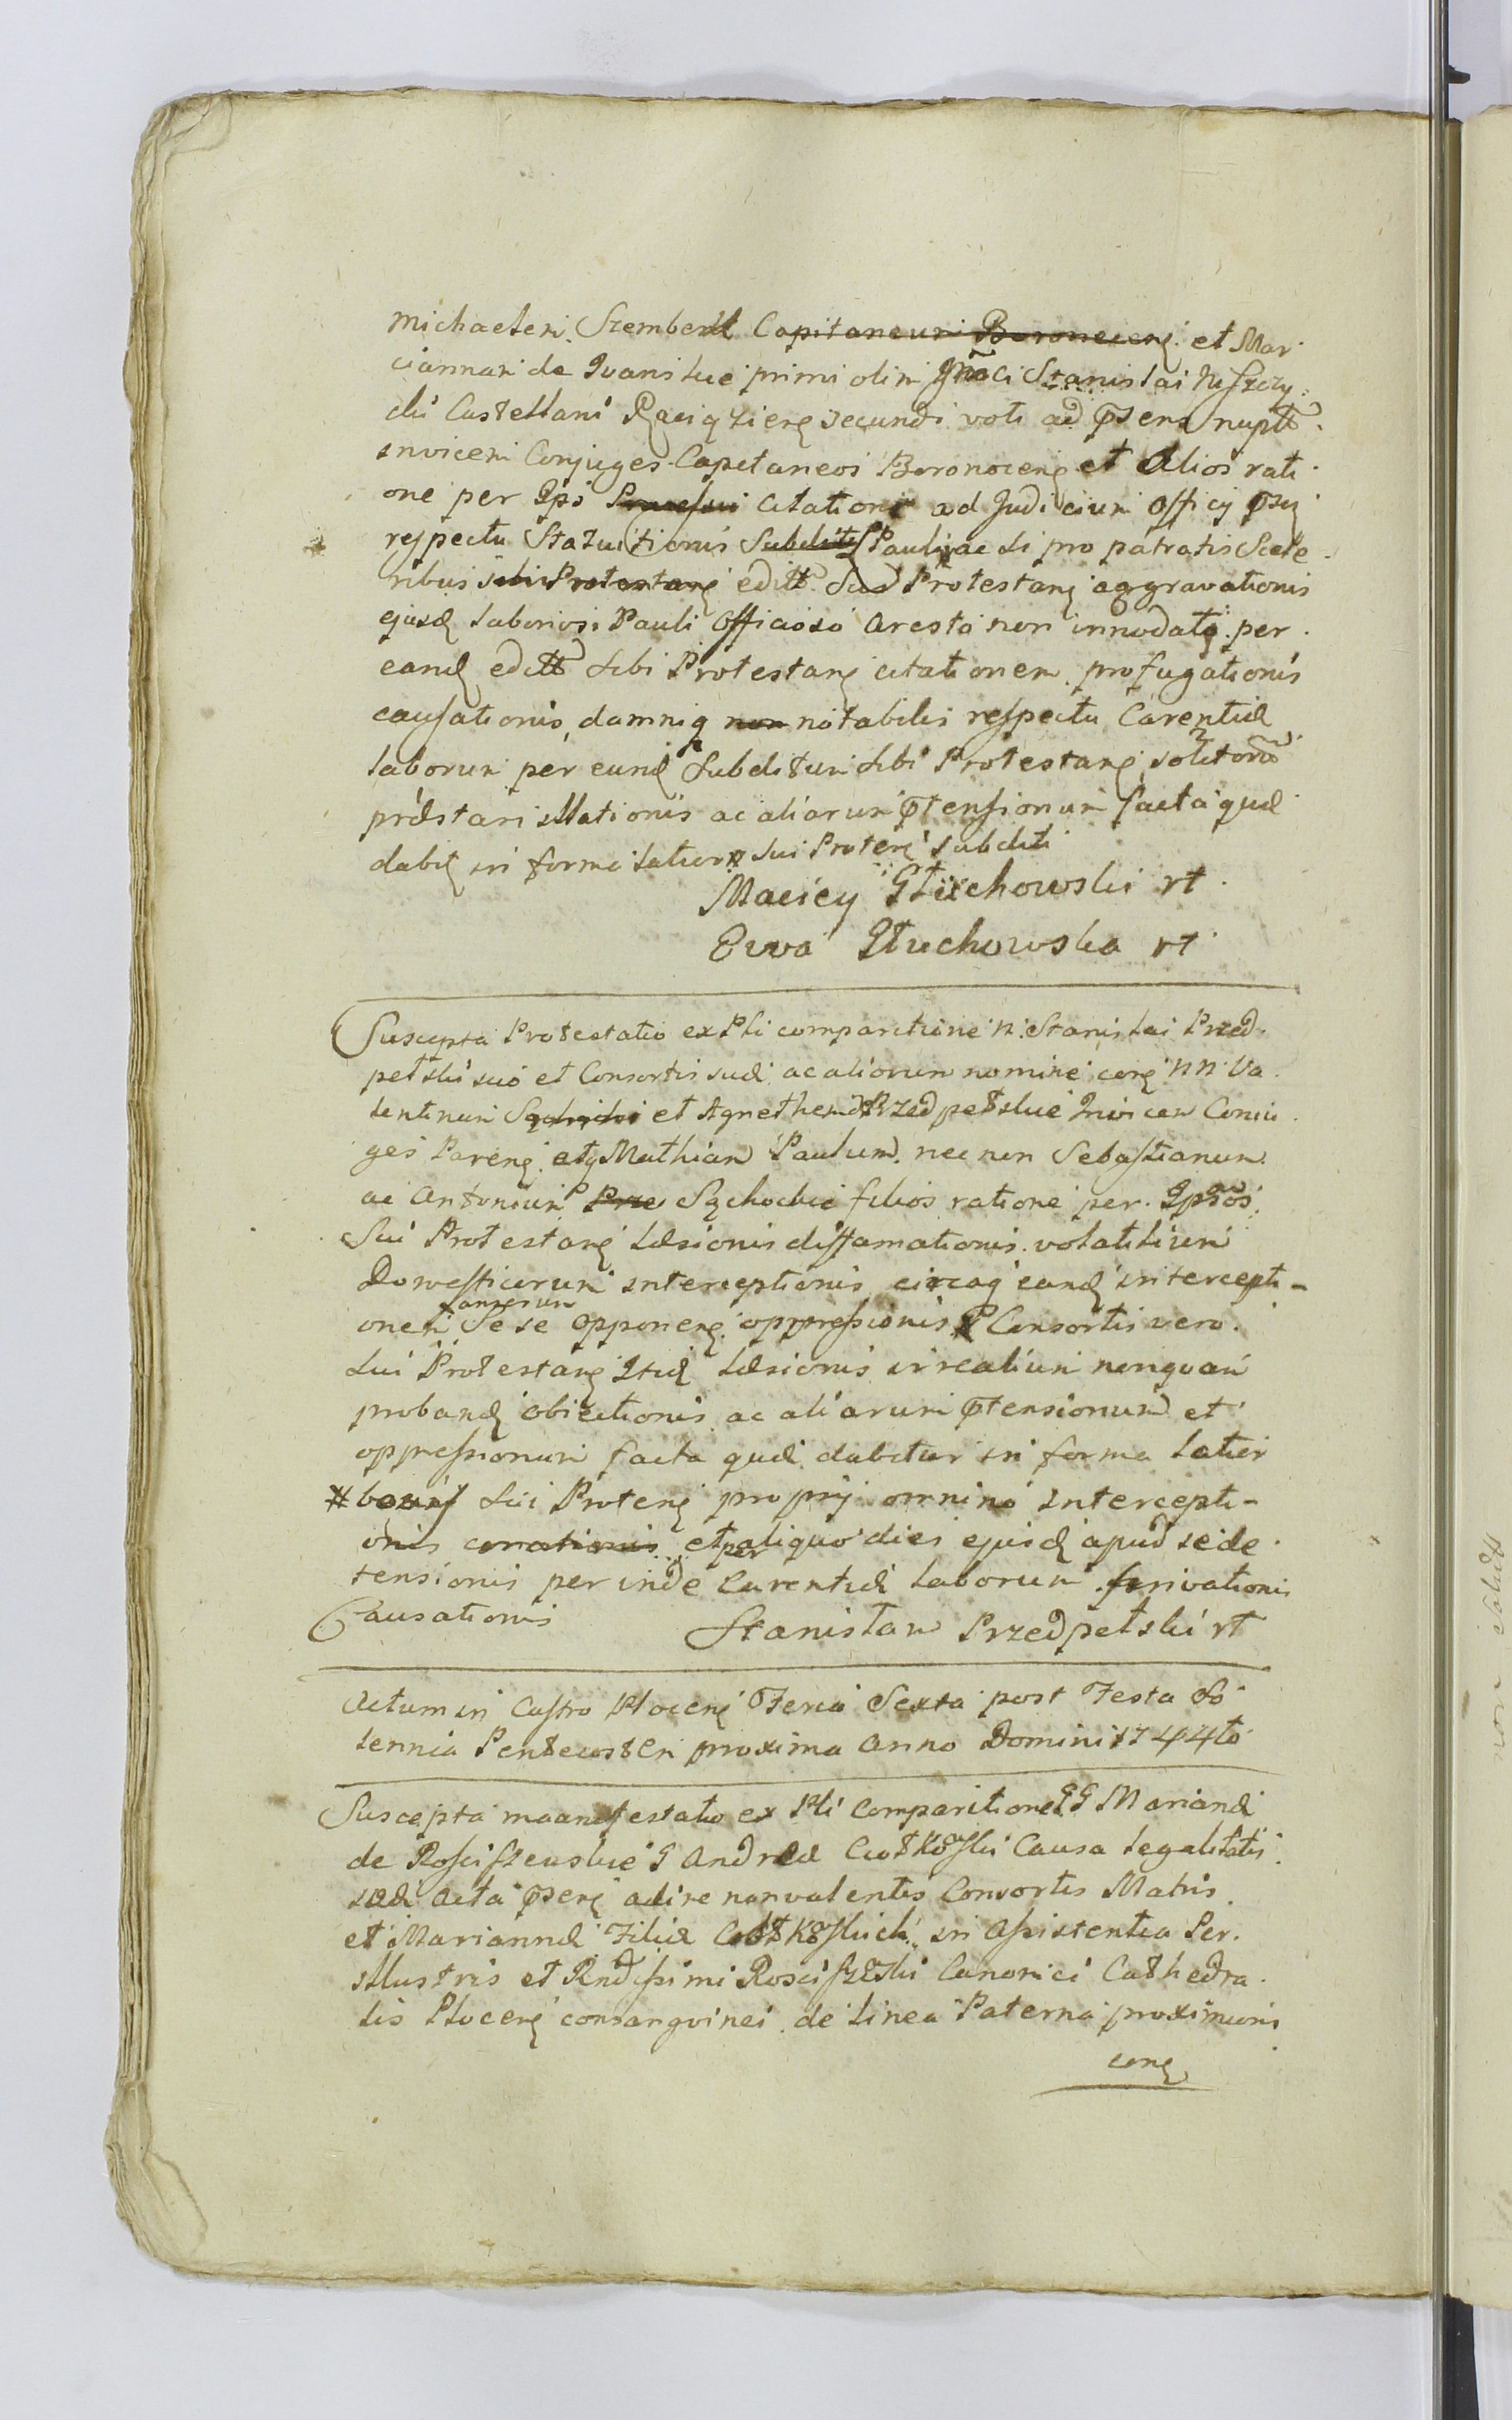 Michaelem Szembek Capitaneum Boronocen et Mar
ciannam de Ivanskie primi olim Gnoci Stanislai Niszczy
cki Castellani Raciązien secundi voti ad psens nuptt
invicem Conjuges Capitaneos Boronocen et Alios rati
one per Ipsos Processui Citationis ad Judicium Officy psy
respectu Statuitionis Subditi Pauli ac si pro patratis Scele
ribus sibi Protestan editt Sud Protestan aggravationis
ejusd Laboriosi Pauli Officioso Aresto non innodatq per
eand editt Sibi Protestan citationem profugationis
causationis, damniq non notabilis respectu Carentiæ
laborum per eund Subditum sibi Protestan solitorum
præstari illationis ac aliarum ptensionum facta quæ
dabit in forma latiori sui Proten subditi
Maciey Głuchowski rt
Ewa Głuchowska rt
Suscepta Protestatio ex Pli comparitione N: Stanislai Przed
pełski suo et Consortis suæ ac aliorum nomine con NN Va
lentinum et Agnethem Przedpełskie Invicem Coniu
ges Paren etq Mathiam Paulum nec non Sebastianum
ac Antonium Prze Sychockie filios ratione per Ipsos
Sui Protestan Læsionis diffamationis volatilium
Domesticorum interceptionis circaq eand intercepti-
onem anserum Sese Opponen oppressionis Consortis vero
Sui Protestan Itid Læsionis irrealium nonquam
proband obiectionis ac aliarum ptensionum et
oppressionum facta quæ dabitur in forma latiori
# Sui Proten proprij omnino intercepti-
onis et per aliquo dies ejusd apud se de
tensionis per inde Carentiæ Laborum privationis
Causationis Stanisław Przedpełski rt
Actum in Castro Plocen Feria Sexta post Festa So
lennia Pentecosten proxima Anno Domini 1744to
Suscepta manifestatio ex Pli Comparitione GG Mariannæ
de Rosciszewskie G Andreæ Ciołkoski Causa legalitatis
suæ Acta psen adire non valentis Consortis Matris
et Mariannæ Filiæ Ciołkoskich in Assistentia Per
illustris et Rndissimi Roscisze͞ski Canonici Cathedra
lis Plocen consangvinei de Linea Paterna proximioris
con